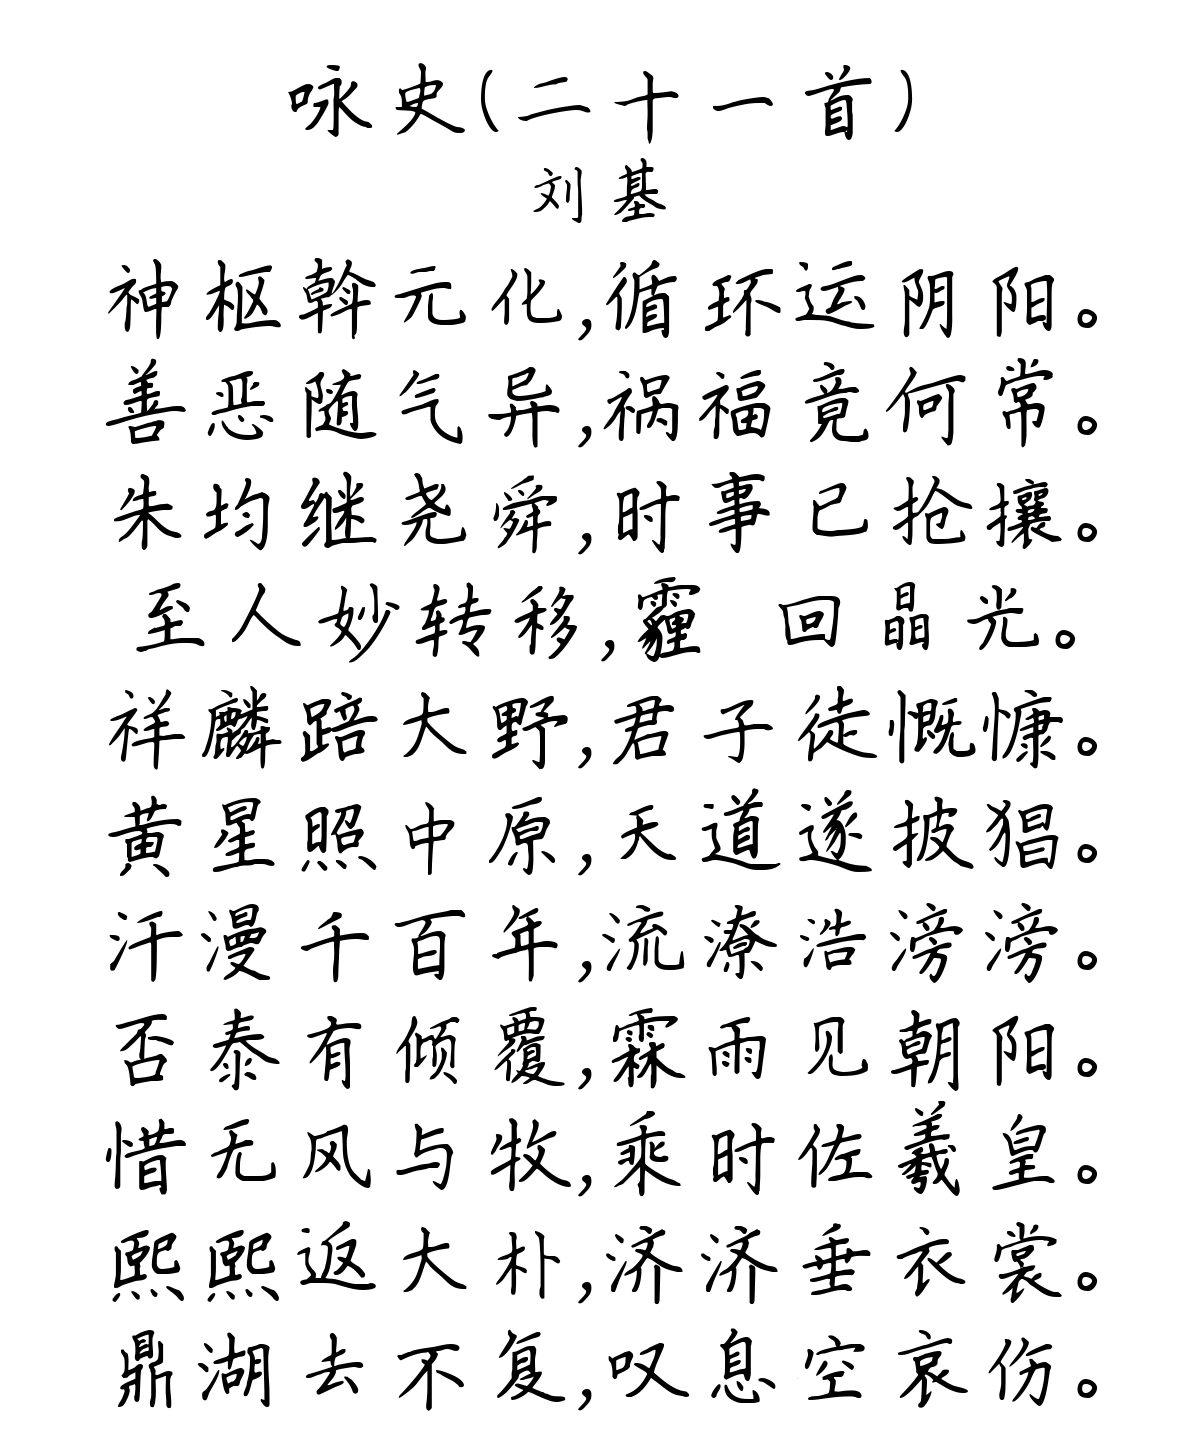 咏史(二十一首)
刘基
神枢斡元化,循环运阴阳。
善恶随气异,祸福竟何常。
朱均继尧舜,时事已抢攘。
至人妙转移,霾 回晶光。
祥麟踣大野,君子徒慨慷。
黄星照中原,天道遂披猖。
汗漫千百年,流潦浩滂滂。
否泰有倾覆,霖雨见朝阳。
惜无风与牧,乘时佐羲皇。
熙熙返大朴,济济垂衣裳。
鼎湖去不复,叹息空哀伤。